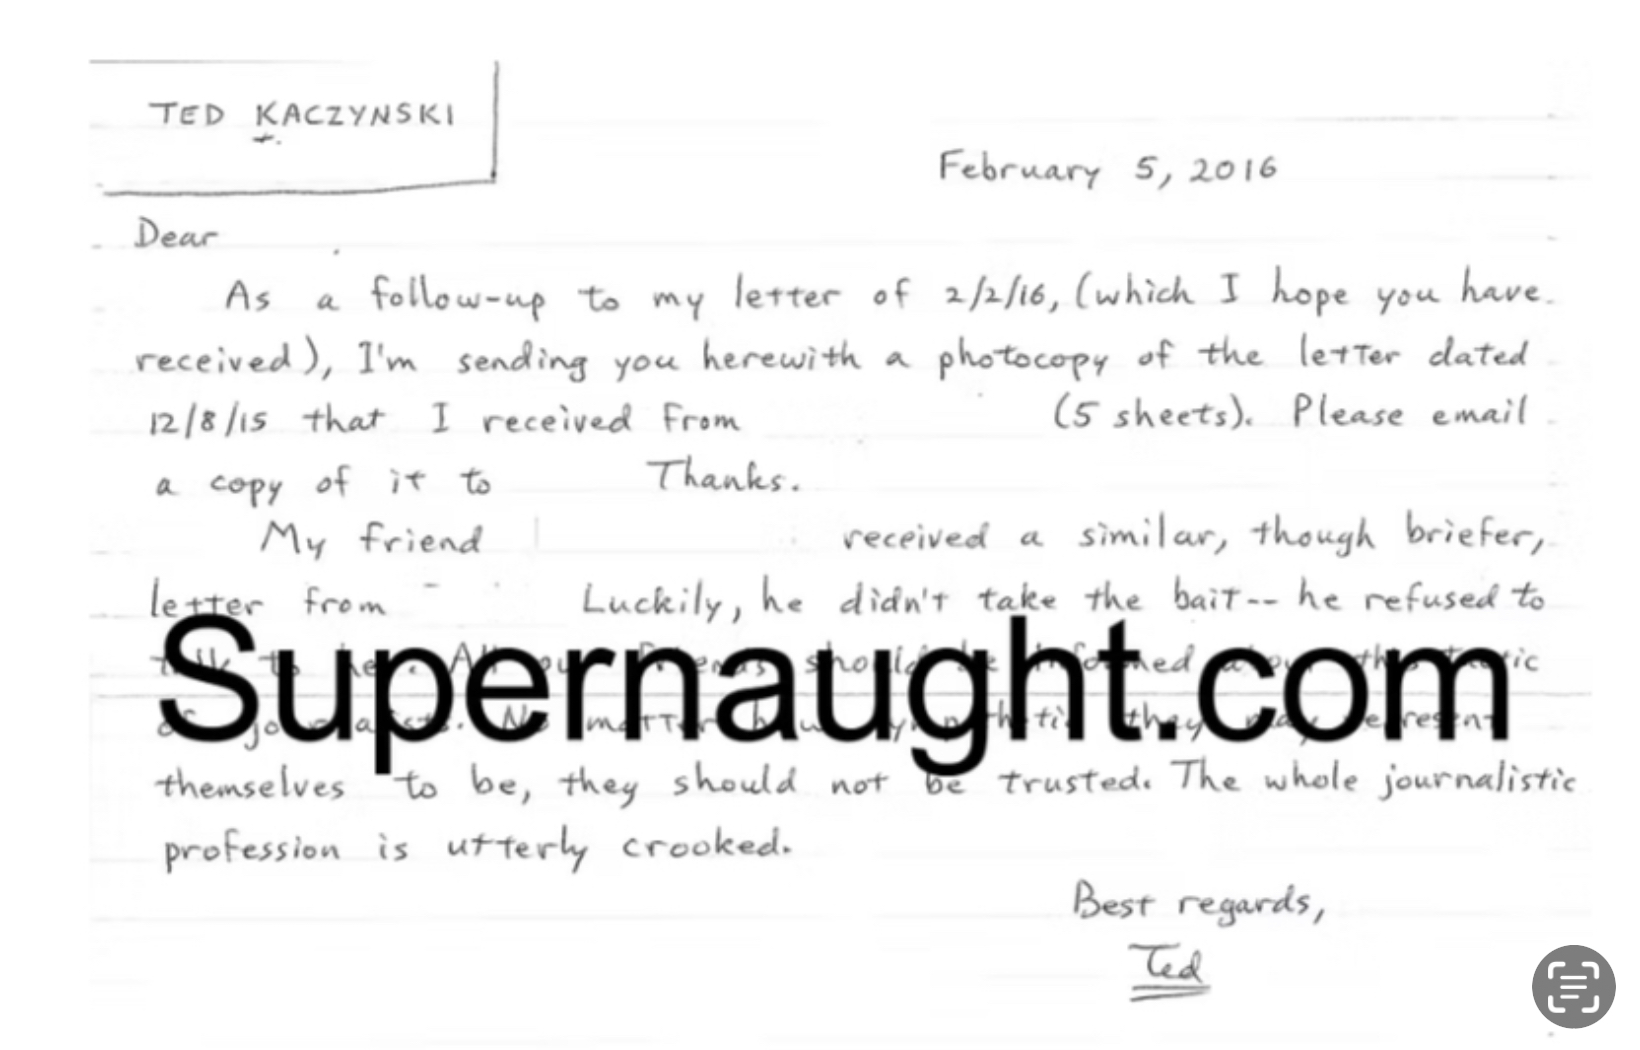 TED KACZYNSKI
February 5, 2016
Dear
As a follow-up to my letter of 2/2/16, (which I hope you have
received), I'm sending you herewith a photocopy of the letter dated
12/8/15 that I received from (5 sheets). Please email
a copy of it to Thanks.
My friend received a similar, though briefer,
letter from Luckily, he didn't take the bait-- he refused to
talk to her. All our friends should be informed about this tactic
Supernaught.com
of journalists. No matter how sympathetic they may represent
themselves to be, they should not be trusted. The whole journalistic
profession is utterly crooked.
Best regards,
Ted